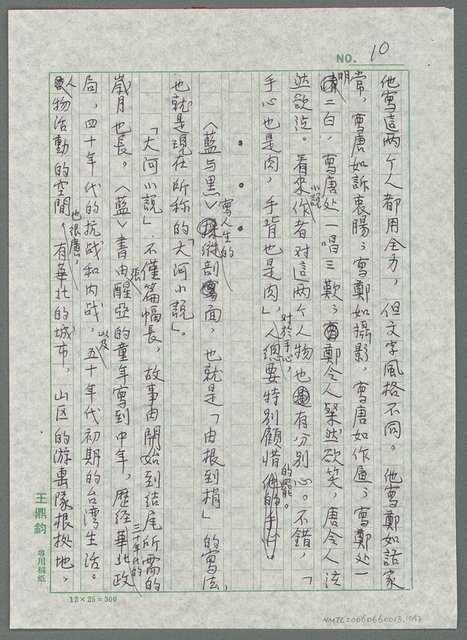 NO. 10
他寫這两个人都用全力，但文字風格不同。他寫鄭如話家
常，寫唐如訴衷腸；寫鄭如攝影，寫唐如作画；寫鄭处一
明二白，寫唐处一唱三歎；鄭令人粲然欲笑，唐令人泫
然欲泣。看來小説作者对這两个人物也是有分别心。不錯，「
手心也是肉，手背也是肉」，人对於手心，總要特别顧惜的罷。
〈藍与黑〉採縱剖寫人生的面，也就是「由根到梢」的寫法，
也就是現在所称的「大河小説」。
「大河小説」不僅篇幅張長，故事由開始到結尾所需的
歲月也長。〈藍〉書由醒亞的童年寫到中年，歷経三十年代的華北政
局，四十年代的抗战和内战，以及五十年代初期的台湾生活。
人物活動的空間也很廣，有華北的城市，山区的游擊隊根拠地，
王鼎鈞 專用稿紙
12×25=300
NMTL20060660013